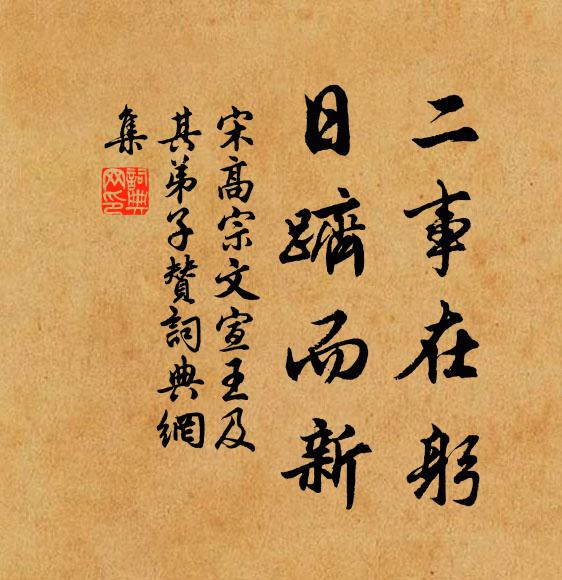 二事在躬
日躋而新
宋高宗文宣王及
其弟子贊詞典網
集
詞典
网印